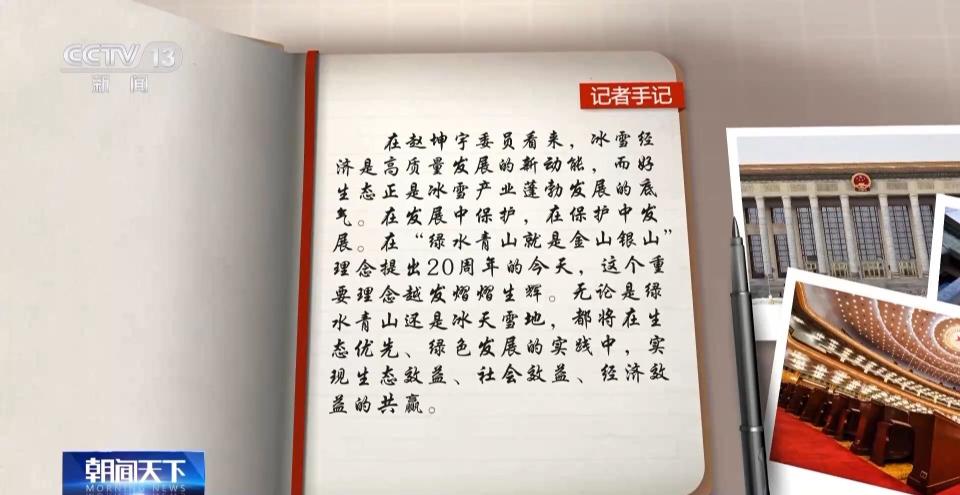 CCTV 13
新闻
记者手记
在赵坤宇委员看来，冰雪经
济是高质量发展的新动能，而好
生态正是冰雪产业蓬勃发展的底
气。在发展中保护，在保护中发
展。在“绿水青山就是金山银山”
理念提出20周年的今天，这个重
要理念越发熠熠生辉。无论是绿
水青山还是冰天雪地，都将在生
态优先、绿色发展的实践中，实
现生态效益、社会效益、经济效
益的共赢。
朝闻天下
MORNING NEWS